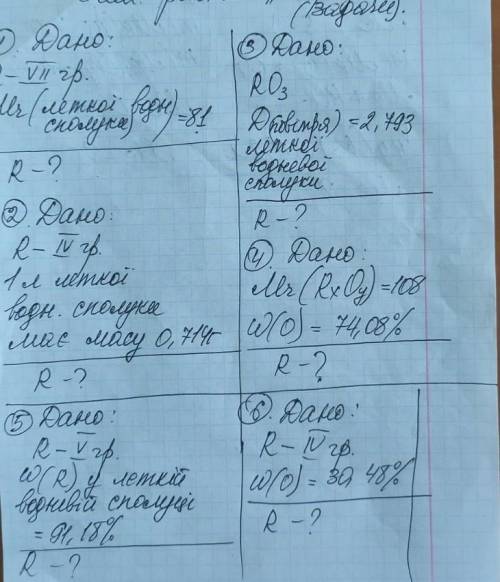 (Задачи).
① Дано:
R – VII гр.
Mr (леткої водн
сполуки) = 81
R – ?
② Дано:
R – IV гр.
1 л леткої
водн. сполуки
має масу 0,714г
R – ?
③ Дано:
RO₃
D(повітря) = 2,793
леткої
водневої
сполуки
R – ?
④ Дано:
Mr (RxOy) = 108
W(O) = 74,08%
R – ?
⑤ Дано:
R – V гр.
W(R) у леткій
водневій сполуці
= 91,18%
R – ?
⑥ Дано:
R – IV гр.
W(O) = 30 48%
R – ?